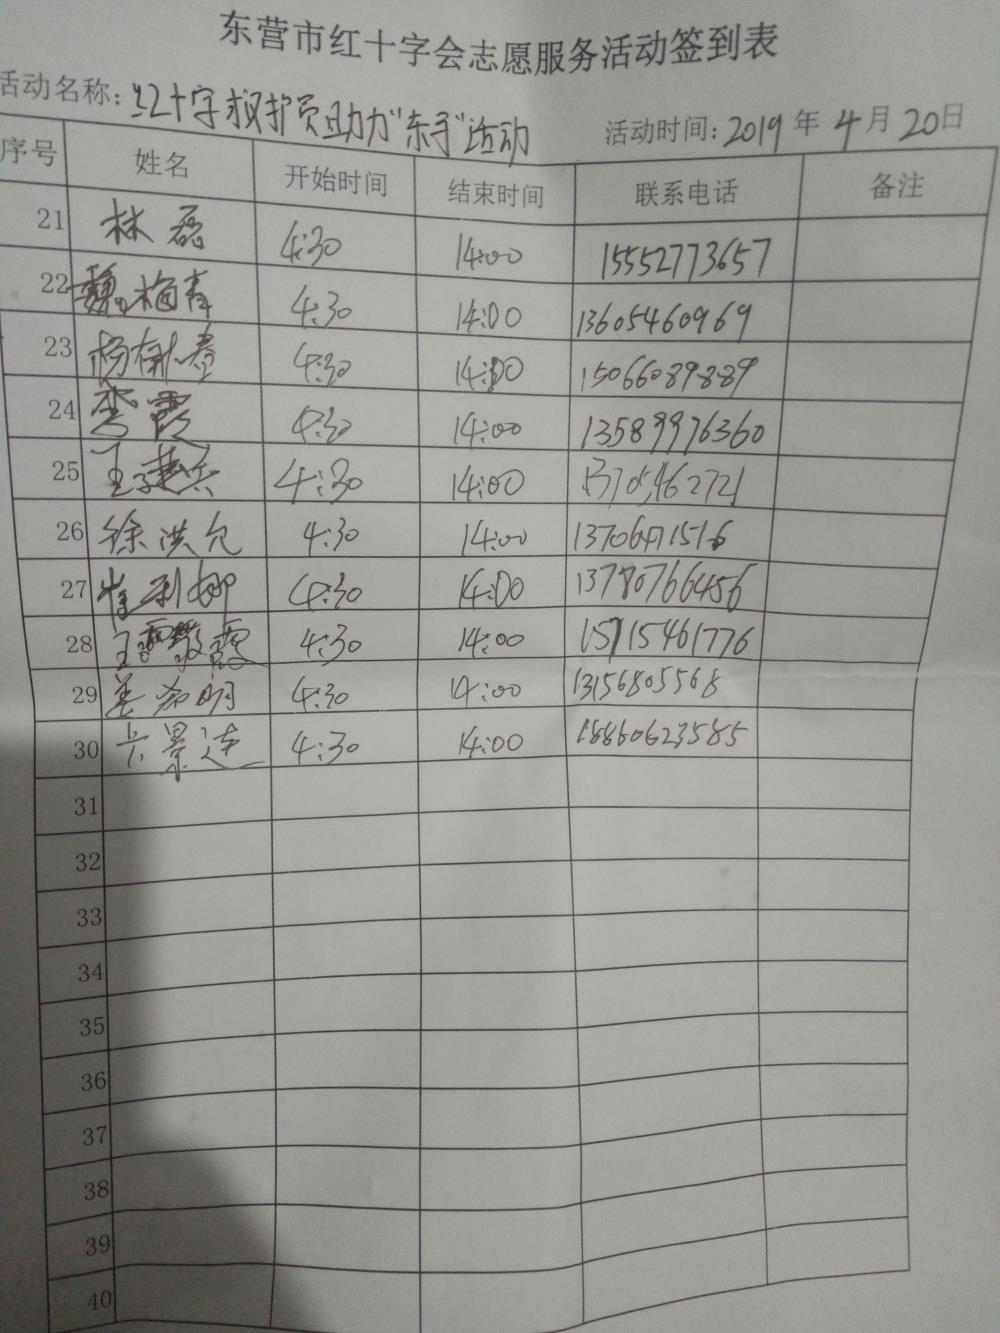 东营市红十字会志愿服务活动签到表
活动名称：红十字救护员助力"东马"活动 活动时间：2019年4月20日
序号 姓名 开始时间 结束时间 联系电话 备注
21 林磊 4:30 14:00 15552773657
22 魏梅青 4:30 14:00 13605460969
23 杨 春 4:30 14:00 15066089889
24 李霞 4:30 14:00 13589976360
25 王 4:30 14:00 13705462721
26 徐洪允 4:30 14:00
27 崔利娜 4:30 14:00 13780766456
28 王 霞 4:30 14:00 15715461776
29 姜希明 4:30 14:00 13156805568
30 卞景连 4:30 14:00 18860623585
31
32
33
34
35
36
37
38
39
40